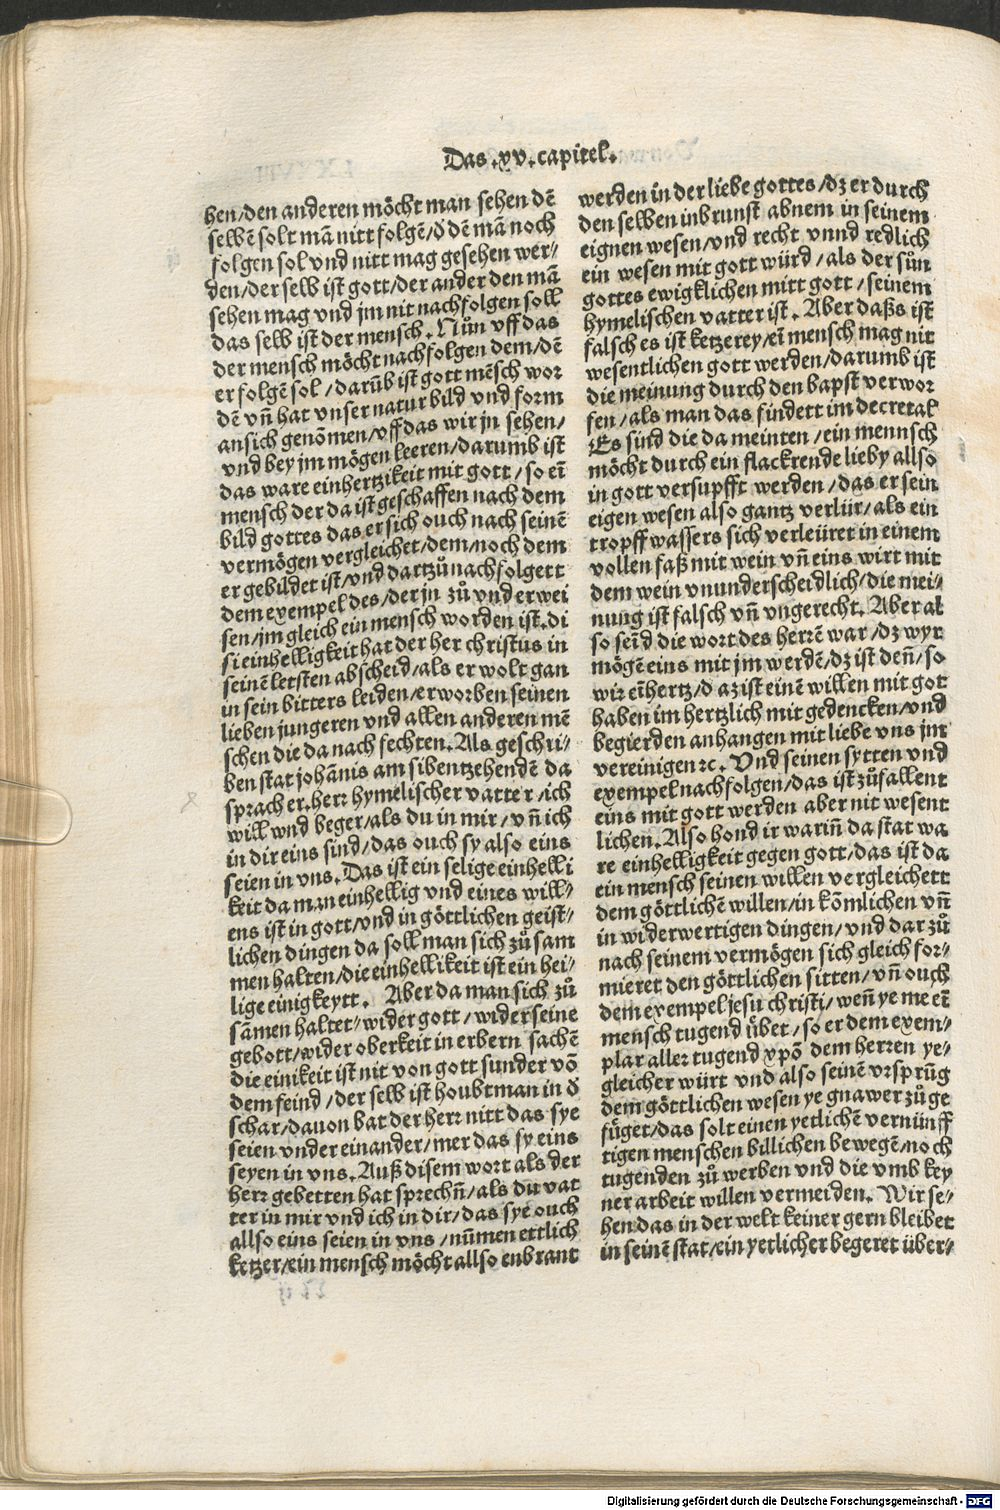 Das .xv. capitel.
hen/den anderen möcht man sehen dē
selbē solt mā nitt folgē/ď dē mā noch
folgen sol vnd nitt mag gesehen wer-
den/der selb ist gott/der ander den mā
sehen mag vnd jm nit nachfolgen soll
das selb ist der mensch. Nůn vff das
der mensch möcht nachfolgen dem/dē
er folgē sol/darūb ist gott mēsch wor
dē vñ hat vnser natur bild vnd form
ansich genōmen/vff das wir jn sehen/
vnd bey jm mögen leeren/darumb ist
das ware einhertzikeit mit gott/so eī
mensch der da ist geschaffen nach dem
bild gottes das er sich ouch nach seinē
vermögen vergleichet/dem/noch dem
er gebildet ist/vnd dartzů nachfolgett
dem exempel des/der jn zů vnderwei
sen/jm gleich ein mensch worden ist.di
si einhelligkeit hat der her christus in
seinē letsten abscheid/als er wolt gan
in sein bitters leiden/erworben seinen
lieben jungeren vnd allen anderen mē
schen die da nach fechten. Als geschri-
ben stat johānis am sibentzehendē da
sprach er.herr hymelischer vatter/ich
will wnd beger/als du in mir/vñ ich
in dir eins sind/das ouch sy also eins
seien in vns. Das ist ein selige einhelli
keit da man einhellig vnd eines will-
ens ist in gott/vnd in göttlichen geist-
lichen dingen da soll man sich zů sam
men halten/die einhellikeit ist ein hei-
lige einigkeytt. Aber da man sich zů
sāmen haltet/wider gott/wider seine
gebott/wider oberkeit in erbern sachē
die einikeit ist nit von gott sunder vō
dem feind/der selb ist houbtman in ď
schar/dauon bat der herr nitt das sye
seien vnder einander/mer das sy eins
seyen in vns. Auß disem wort als der
herr gebetten hat sprechñ/als du vat
ter in mir vnd ich in dir/das sye ouch
allso eins seien in vns/nūmen ettlich
ketzer/ein mensch möcht allso enbrant
werden in der liebe gottes/dz er durch
den selben inbrunst abnem in seinem
eignen wesen/vnd recht vnnd redlich
ein wesen mit gott würd/als der sůn
gottes ewigklichen mitt gott/seinem
hymelischen vatter ist. Aber daßs ist
falsch es ist ketzerey/eī mensch mag nit
wesentlichen gott werden/darumb ist
die meinung durch den bapst verwor
fen/als man das findett im decretal
Es sind die da meinten/ein mennsch
möcht durch ein flackrende lieby allso
in gott versupfft werden/das er sein
eigen wesen also gantz verlür/als ein
tropff wassers sich verleüret in einem
vollen faß mit wein vñ eins wirt mit
dem wein vnunderscheidlich/die mei-
nung ist falsch vñ vngerecht. Aber al
so seīd die wort des herrē war/dz wyr
mögē eins mit jm werdē/dz ist deñ/so
wir eīhertz/d az ist einē willen mit got
haben im hertzlich mit gedencken/vnd
begierden anhangen mit liebe vns jm
vereinigen ꝛc. Vnd seinen sytten vnd
exempel nachfolgen/das ist zůfallent
eins mit gott werden aber nit wesent
lichen. Also hond ir wariñ da stat wa
re einhelligkeit gegen gott/das ist da
ein mensch seinen willen vergleichett
dem göttlichē willen/in kōmlichen vñ
in widerwertigen dingen/vnd dar zů
nach seinem vermögen sich gleich for-
mieret den göttlichen sitten/vñ ouch
dem exempel jesu christi/weñ ye me eī
mensch tugend übet/so er dem exem-
plar aller tugend xpō dem herren ye-
gleicher würt vnd also seinē vrsprūg
dem göttlichen wesen ye gnawer zů ge
füget/das solt einen yetlichē vernünff
tigen menschen billichen bewegē/noch
tugenden zů werben vnd die vmb key
ner arbeit willen vermeiden. Wir se-
hen das in der welt keiner gern bleibet
in seinē stat/ein yetlicher begeret über-
Digitalisierung gefördert durch die Deutsche Forschungsgemeinschaft - DFG